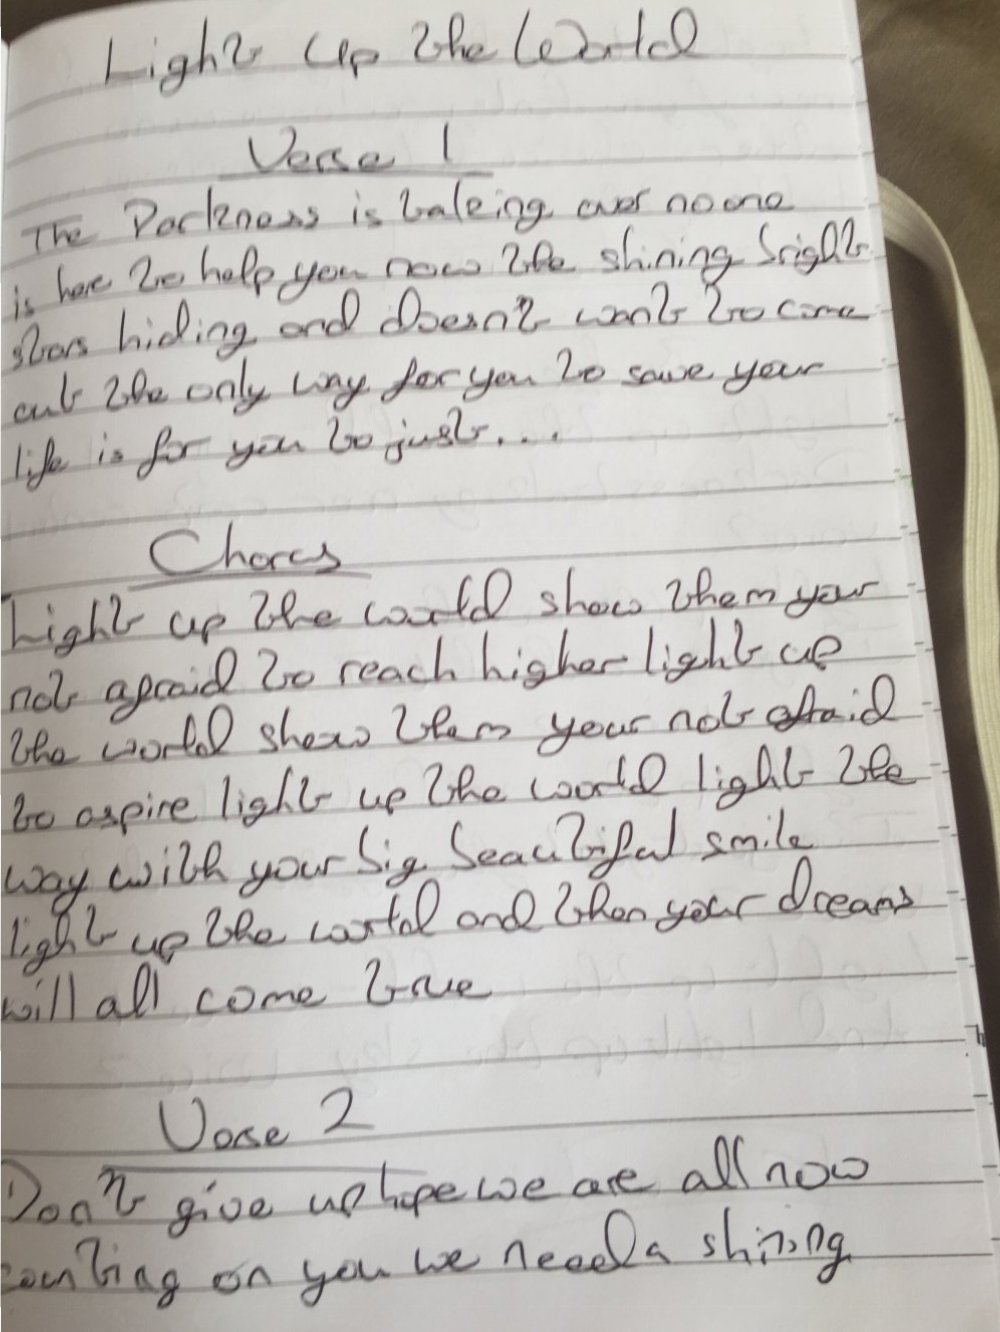 Light up the World
Verse 1
The Darkness is takeing over no one
is here to help you now the shining bright
stars hiding and doesn't want to come
out the only way for you to save your
life is for you to just...
Chorus
Light up the world show them your
not afraid to reach higher light up
the world show them your not afraid
to aspire light up the world light the
way with your big beautiful smile
light up the world and then your dreams
will all come true
Verse 2
Don't give up hope we are all now
counting on you we need a shining